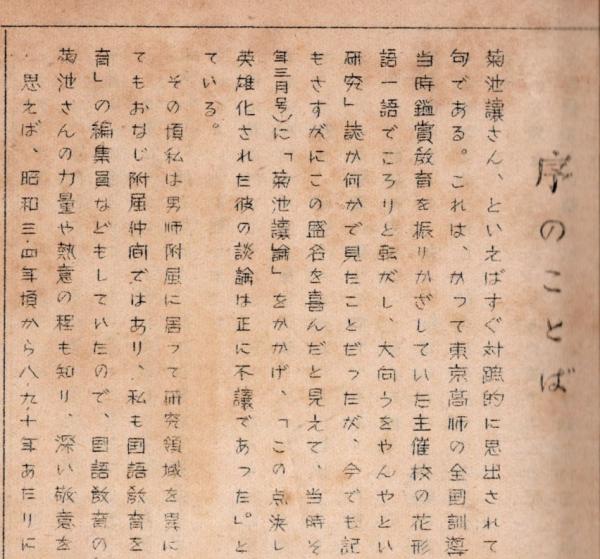 序のことば
菊池讓さん、といえばすぐ対蹠的に思出されて
句である。これは、かって東京高師の全国訓導
当時鑑賞教育を振りかざしていた主催校の花形
語一語でころりと転がし、大向うをやんやとい
研究」誌か何かで見たことだったが、今でも記
もさすがにこの盛名を喜んだと見えて、当時そ
年三月号)に「菊池讓論」をかかげ、「この点決し
英雄化された彼の談論は正に不讓であった。」と
ている。
その頃私は男師附属に居って研究領域を異に
てもおなじ附属仲間ではあり、私も国語教育を
育」の編集員などもしていたので、国語教育の
菊池さんの力量や熱意の程も知り、深い敬意を
思えば、昭和三・四年頃から八、九、十年あたりに